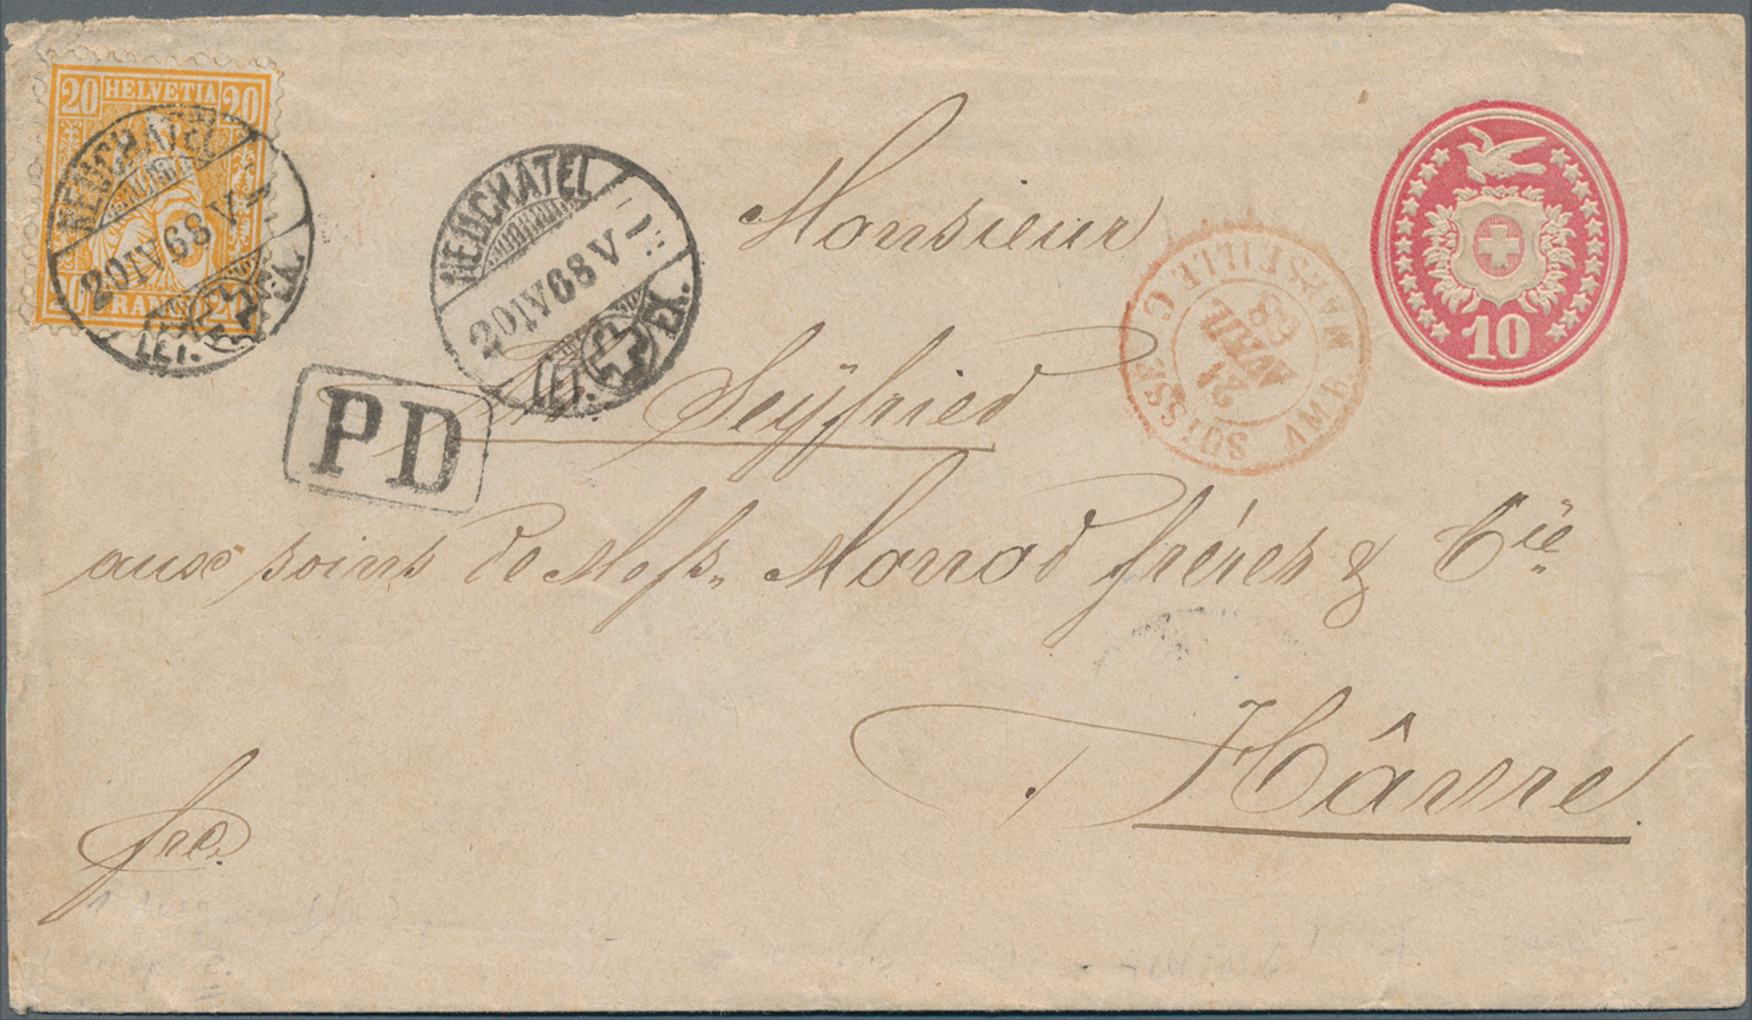 20 HELVETIA 20
20 FRANCO 20
NEUCHATEL
20 IV 68 V
LET. EX.
NEUCHATEL
20 IV 68 V
LET. EX.
PD
10
SUISSE AMB MARSEILLE C
21
AVRIL
68
Monsieur
Seÿfried
aux soins de Messrs Monod frères & Cie
Hâvre
frco